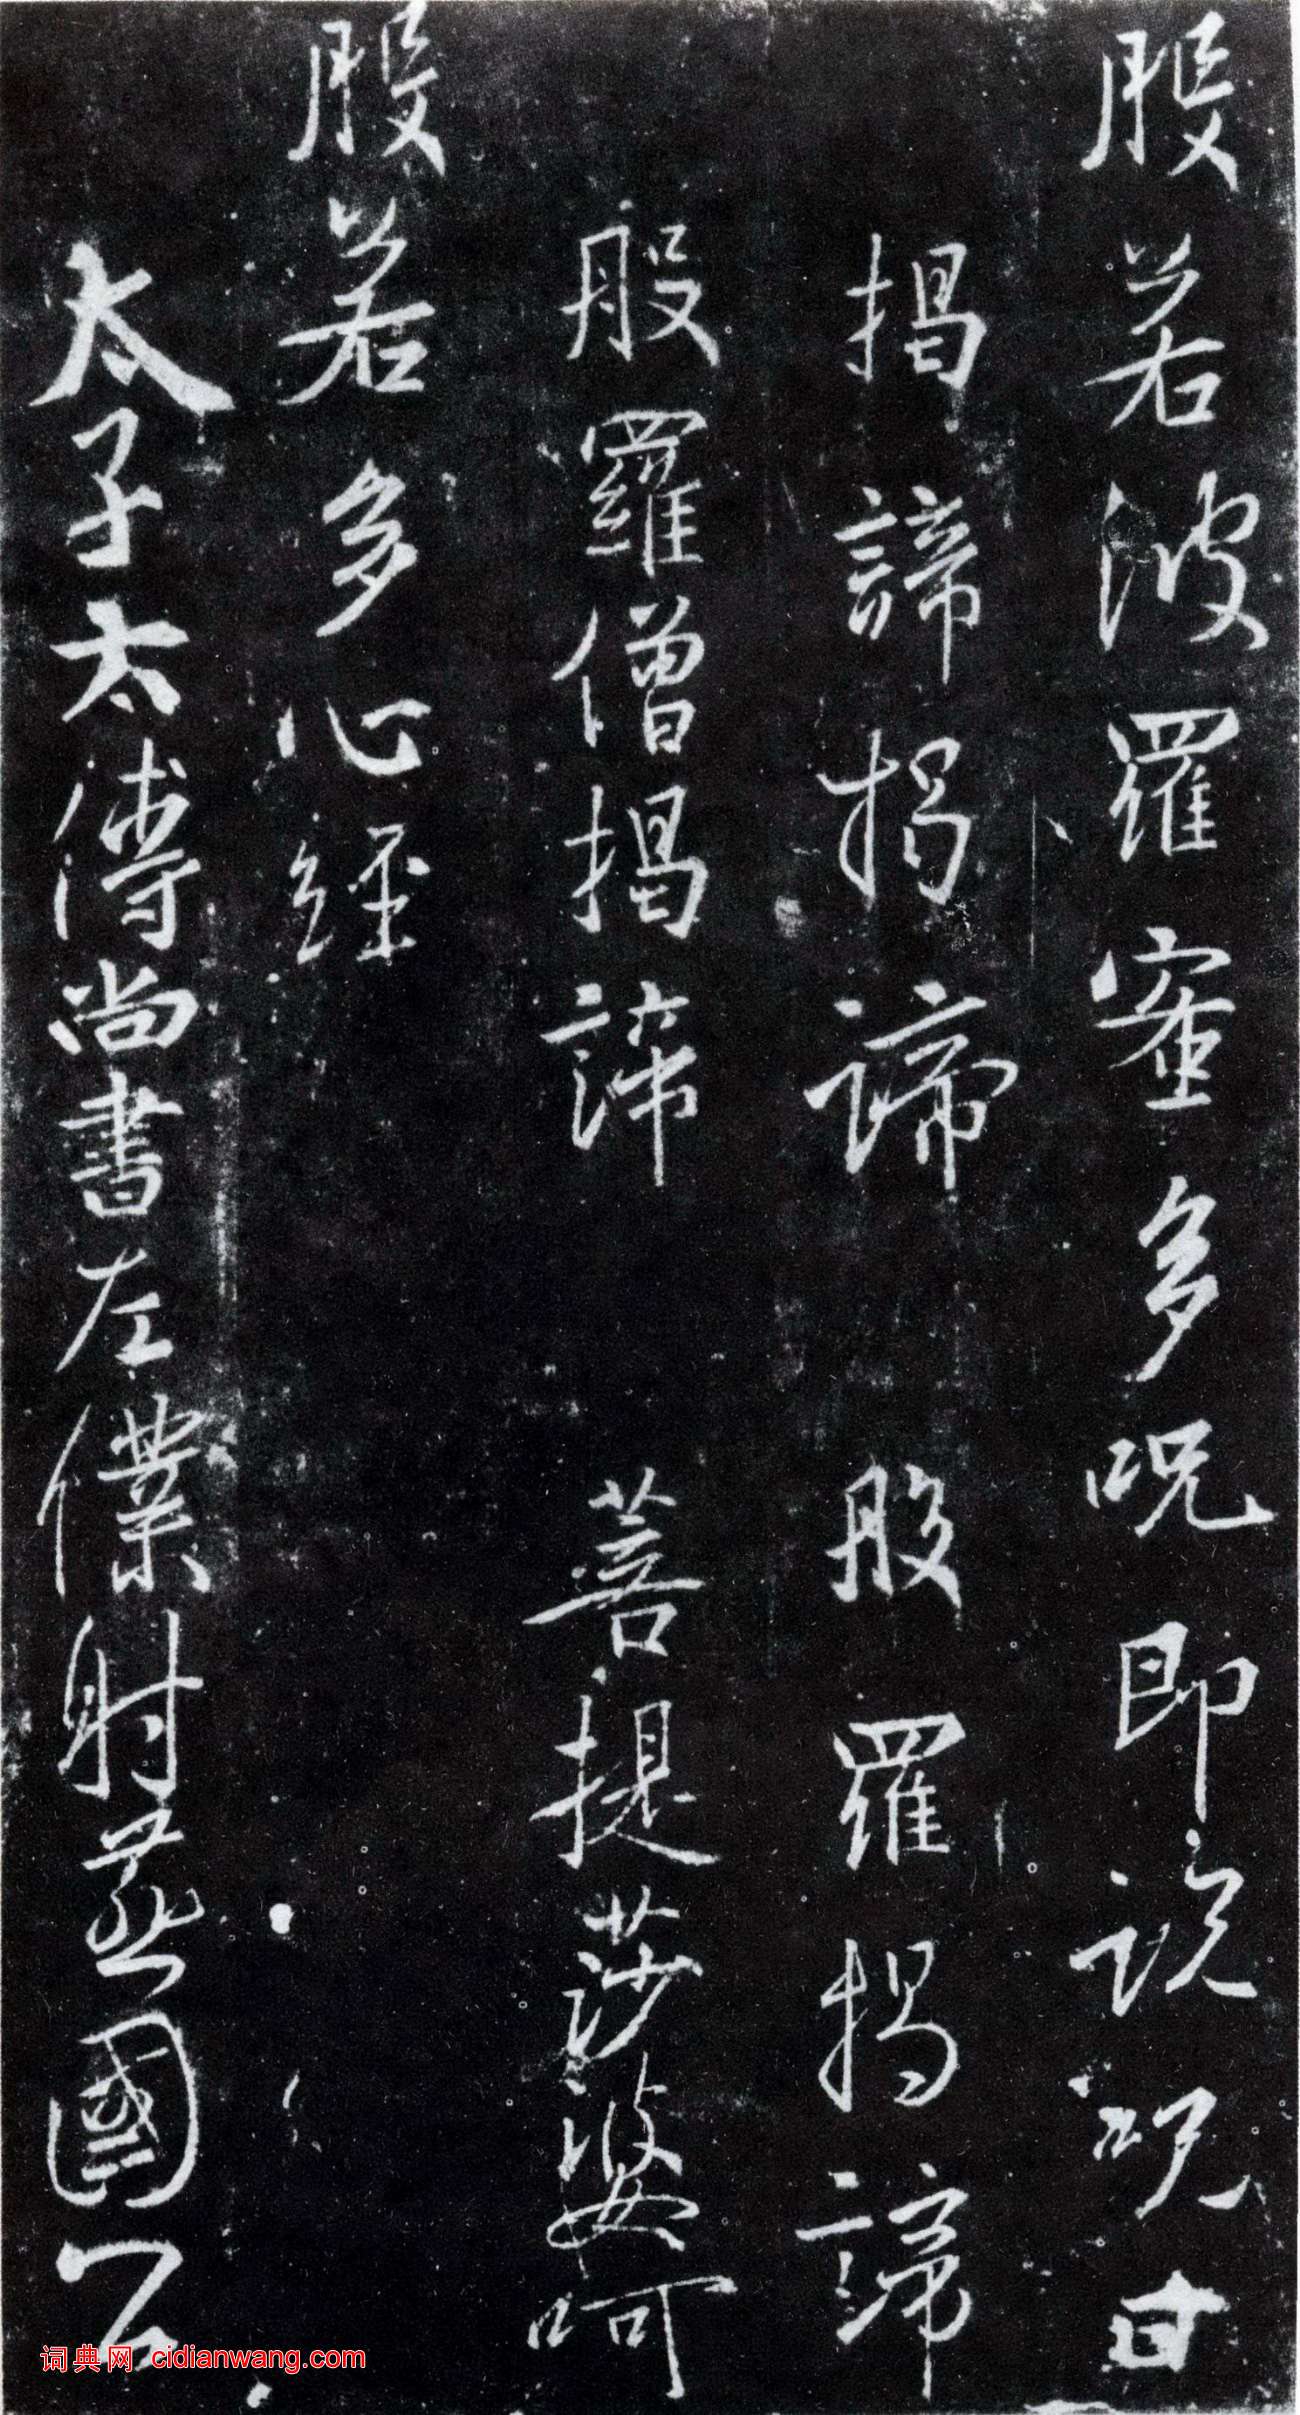 般若波羅蜜多咒即說咒曰
揭諦揭諦　般羅揭諦
般羅僧揭諦　菩提莎婆呵
般若多心經
太子太傅尚書左僕射燕國公
词典网 cidianwang.com